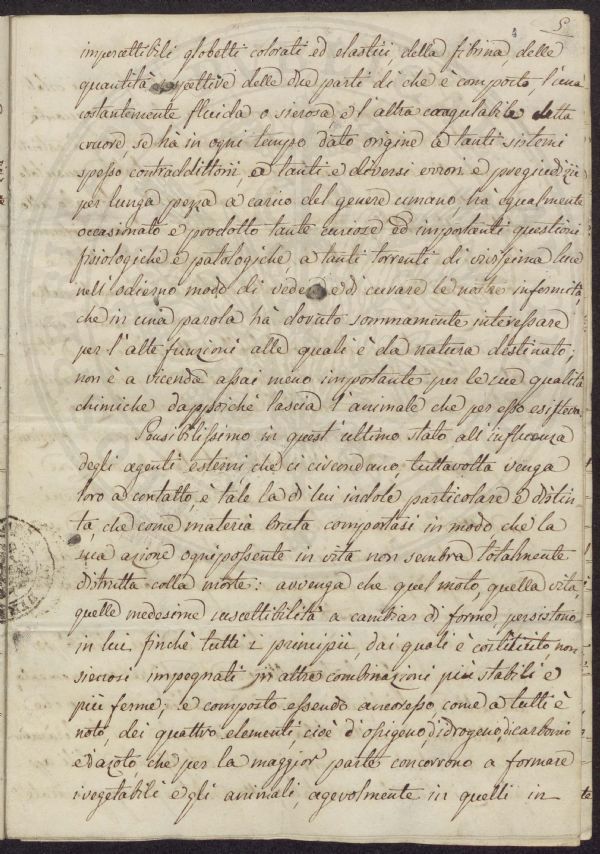 5
impercettibili globetti colorati ed elastici, della fibrina, delle
quantità rispettive delle due parti di che è composto, l'una
costantemente fluida o sierosa e l'altra coagulabile detta
cruore se hà in ogni tempo dato origine a tanti sistemi
spesso contraddittorii e a tanti e diversi errori e pregiudizii
per lunga pezza a carico del genere umano, hà egualmente
occasionato e prodotto tante curiose ed importanti questioni
fisiologiche e patologiche, a tanti torrenti di vivissima luce
nell'odierno modo di vedere e di curare le nostre infermità,
che in una parola hà dovuto sommamente interessare
per l'alte funzioni alle quali è da natura destinato,
non è a vicenda assai meno importante per le sue qualità
chimiche dappoichè lascia l'animale che per esso esisteva.
Sensibilissimo in quest'ultimo stato all'influenza
degli agenti esterni che ci circondano, tuttavolta venga
loro a contatto, è tale la di lui indole particolare e distin
ta, che come materia bruta comportasi in modo che la
sua azione ognipossente in vita non sembra totalmente
distrutta colla morte: avvenga che quel moto, quella vita,
quelle medesime suscettibilità a cambiar di forme, persistono
in lui finchè tutti i principii, dai quali è costituito non
siensi impegnati in altre combinazioni più stabili e
più ferme; e composto essendo ancoresso come a tutti è
noto, dei quattro elementi, cioè d'ossigeno, d'idrogeno, di carbonio
e d'azoto, che per la maggior parte concorrono a formare
i vegetabili e gli animali, agevolmente in quelli in